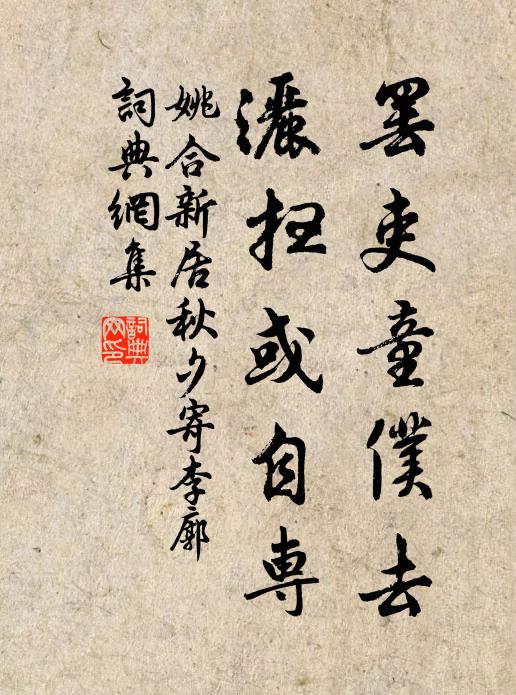 罢吏童僕去
灑扫或自専
姚合新居秋夕寄李廓
詞典網集
詞典
网印